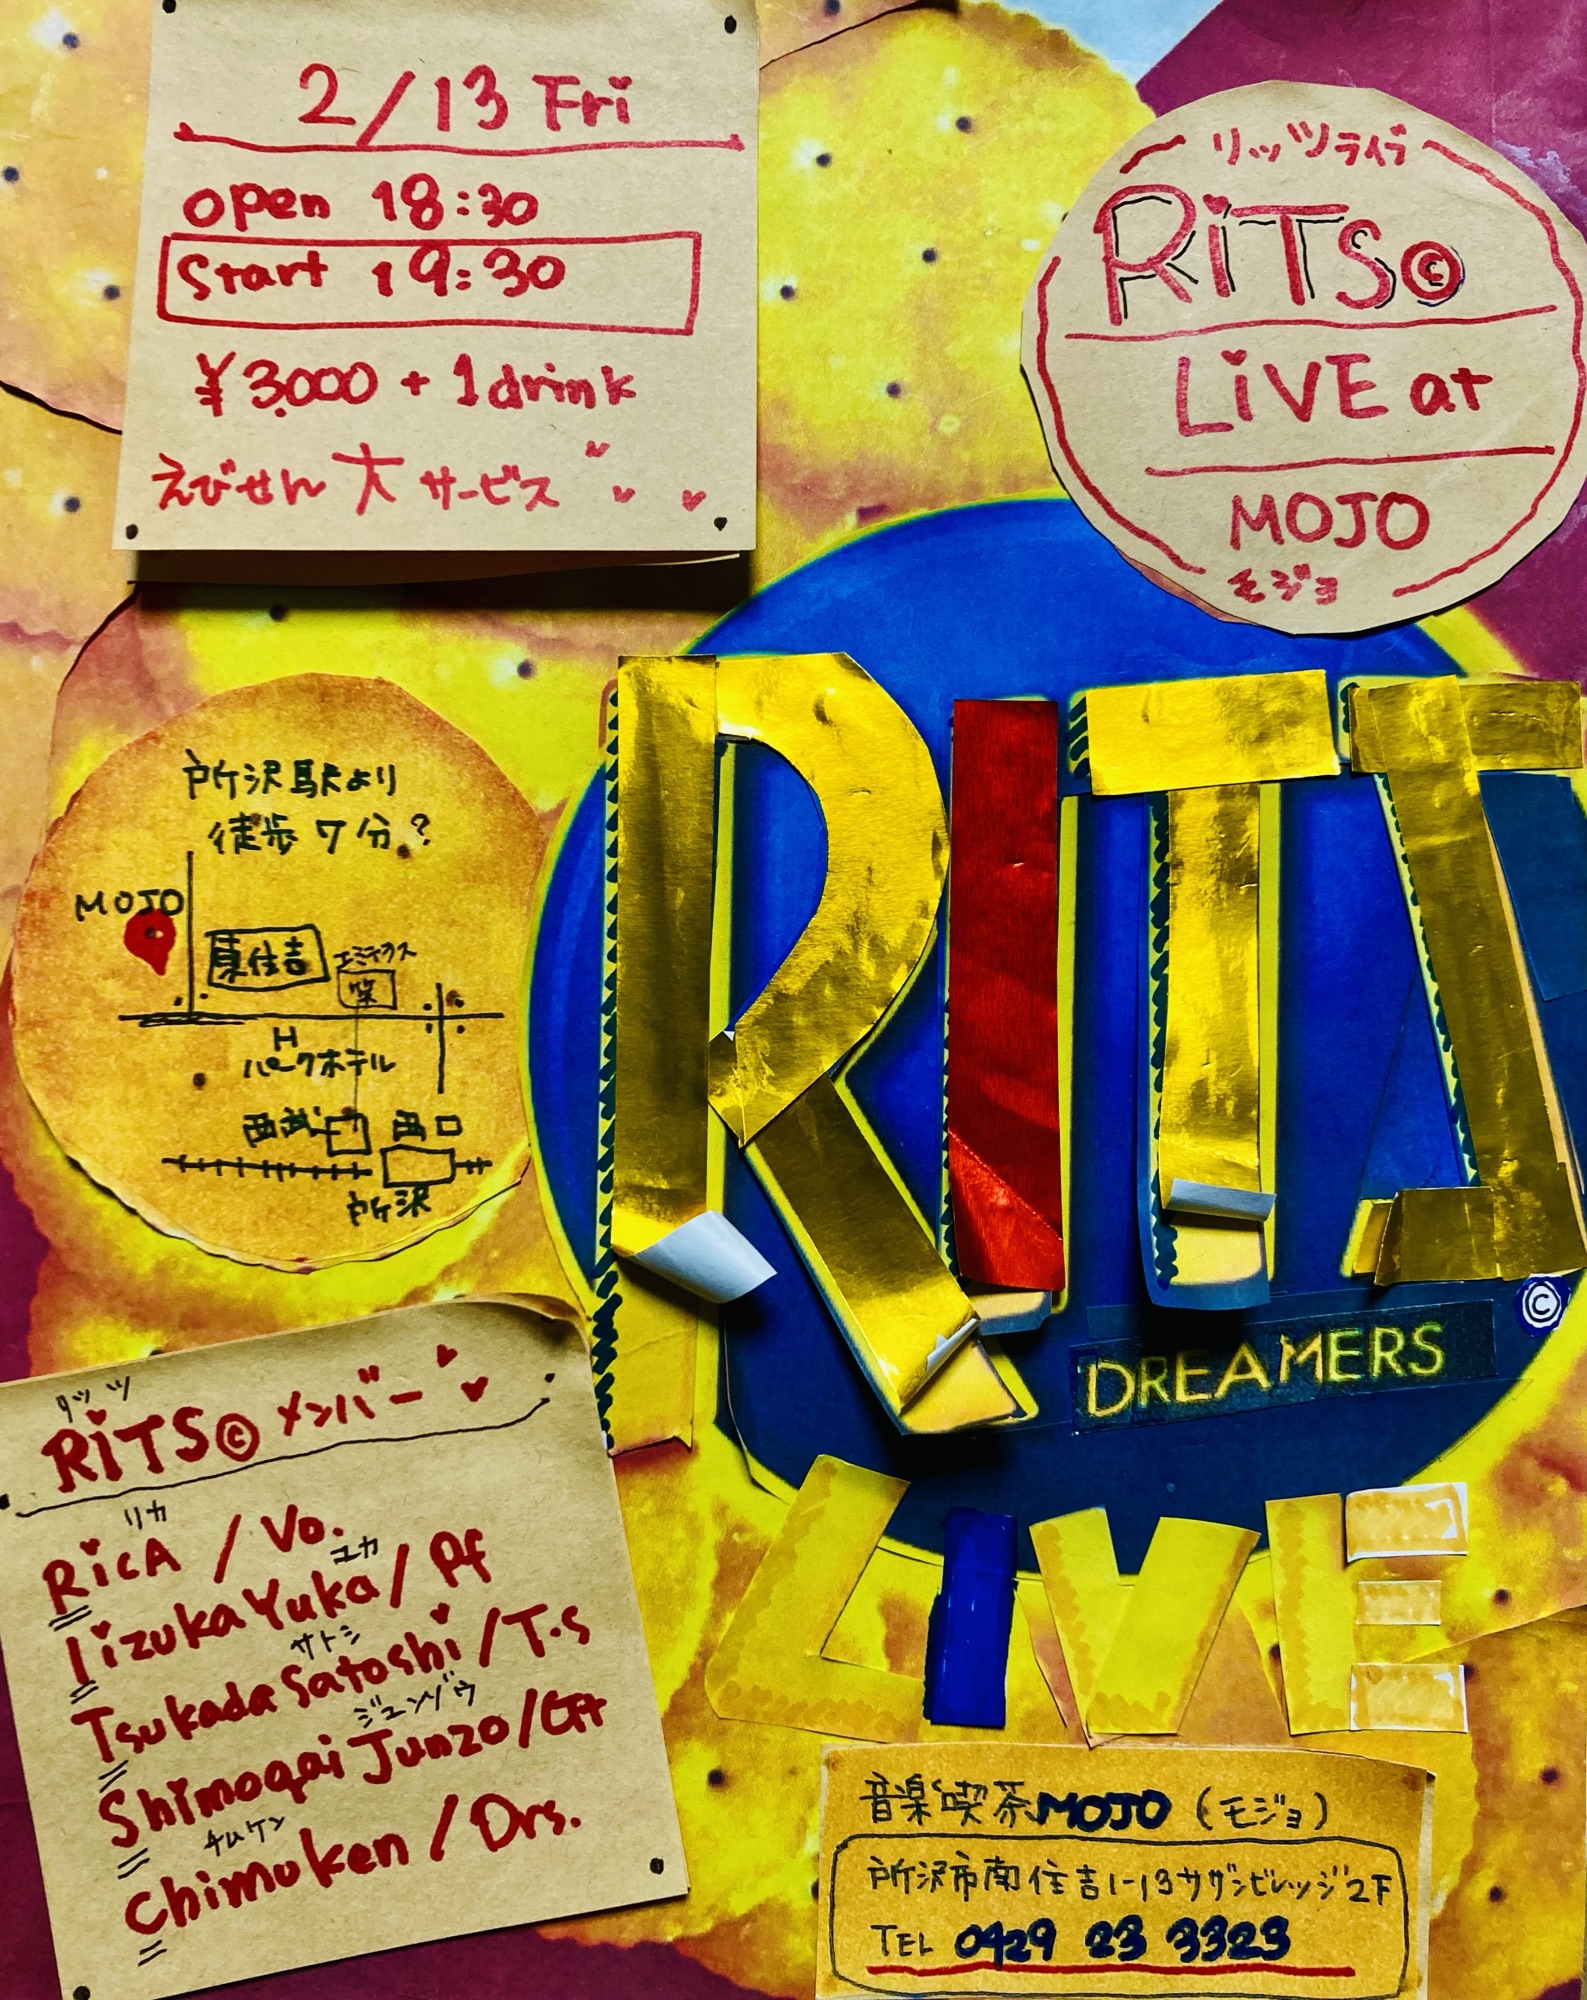 2/13 Fri
open 18:30
Start 19:30
¥3,000 + 1drink
えびせん 大 サービス
リッツライブ
RiTS©
LiVE at
MOJO
モジョ
所沢駅より
徒歩7分?
MOJO
東住吉
エミテラス
H
パークホテル
西武 西口
所沢
RITS
©
DREAMERS
LIVE
リッツ
RiTS© メンバー
リカ
RicA / Vo.
ユカ
Iizuka Yuka / Pf
サトシ
Tsukada Satoshi / T.s
ジュンゾウ
Shimogai Junzo / Gt
チムケン
Chimuken / Drs.
音楽喫茶MOJO (モジョ)
所沢市南住吉1-13サザンビレッジ2F
TEL 0429 23 3323